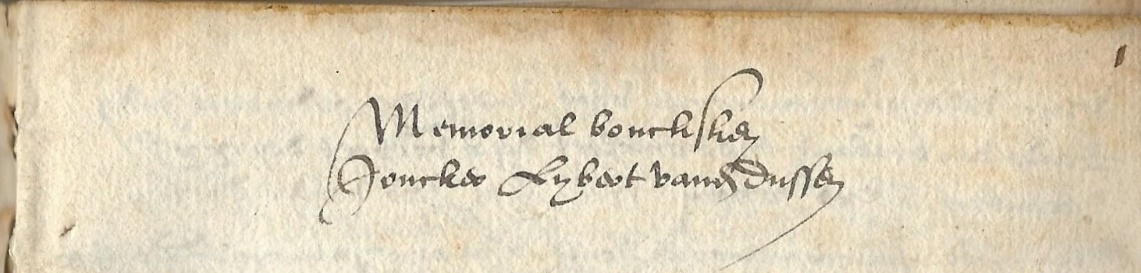 Memorial boucksken
Joncker Lybert vander Dussen